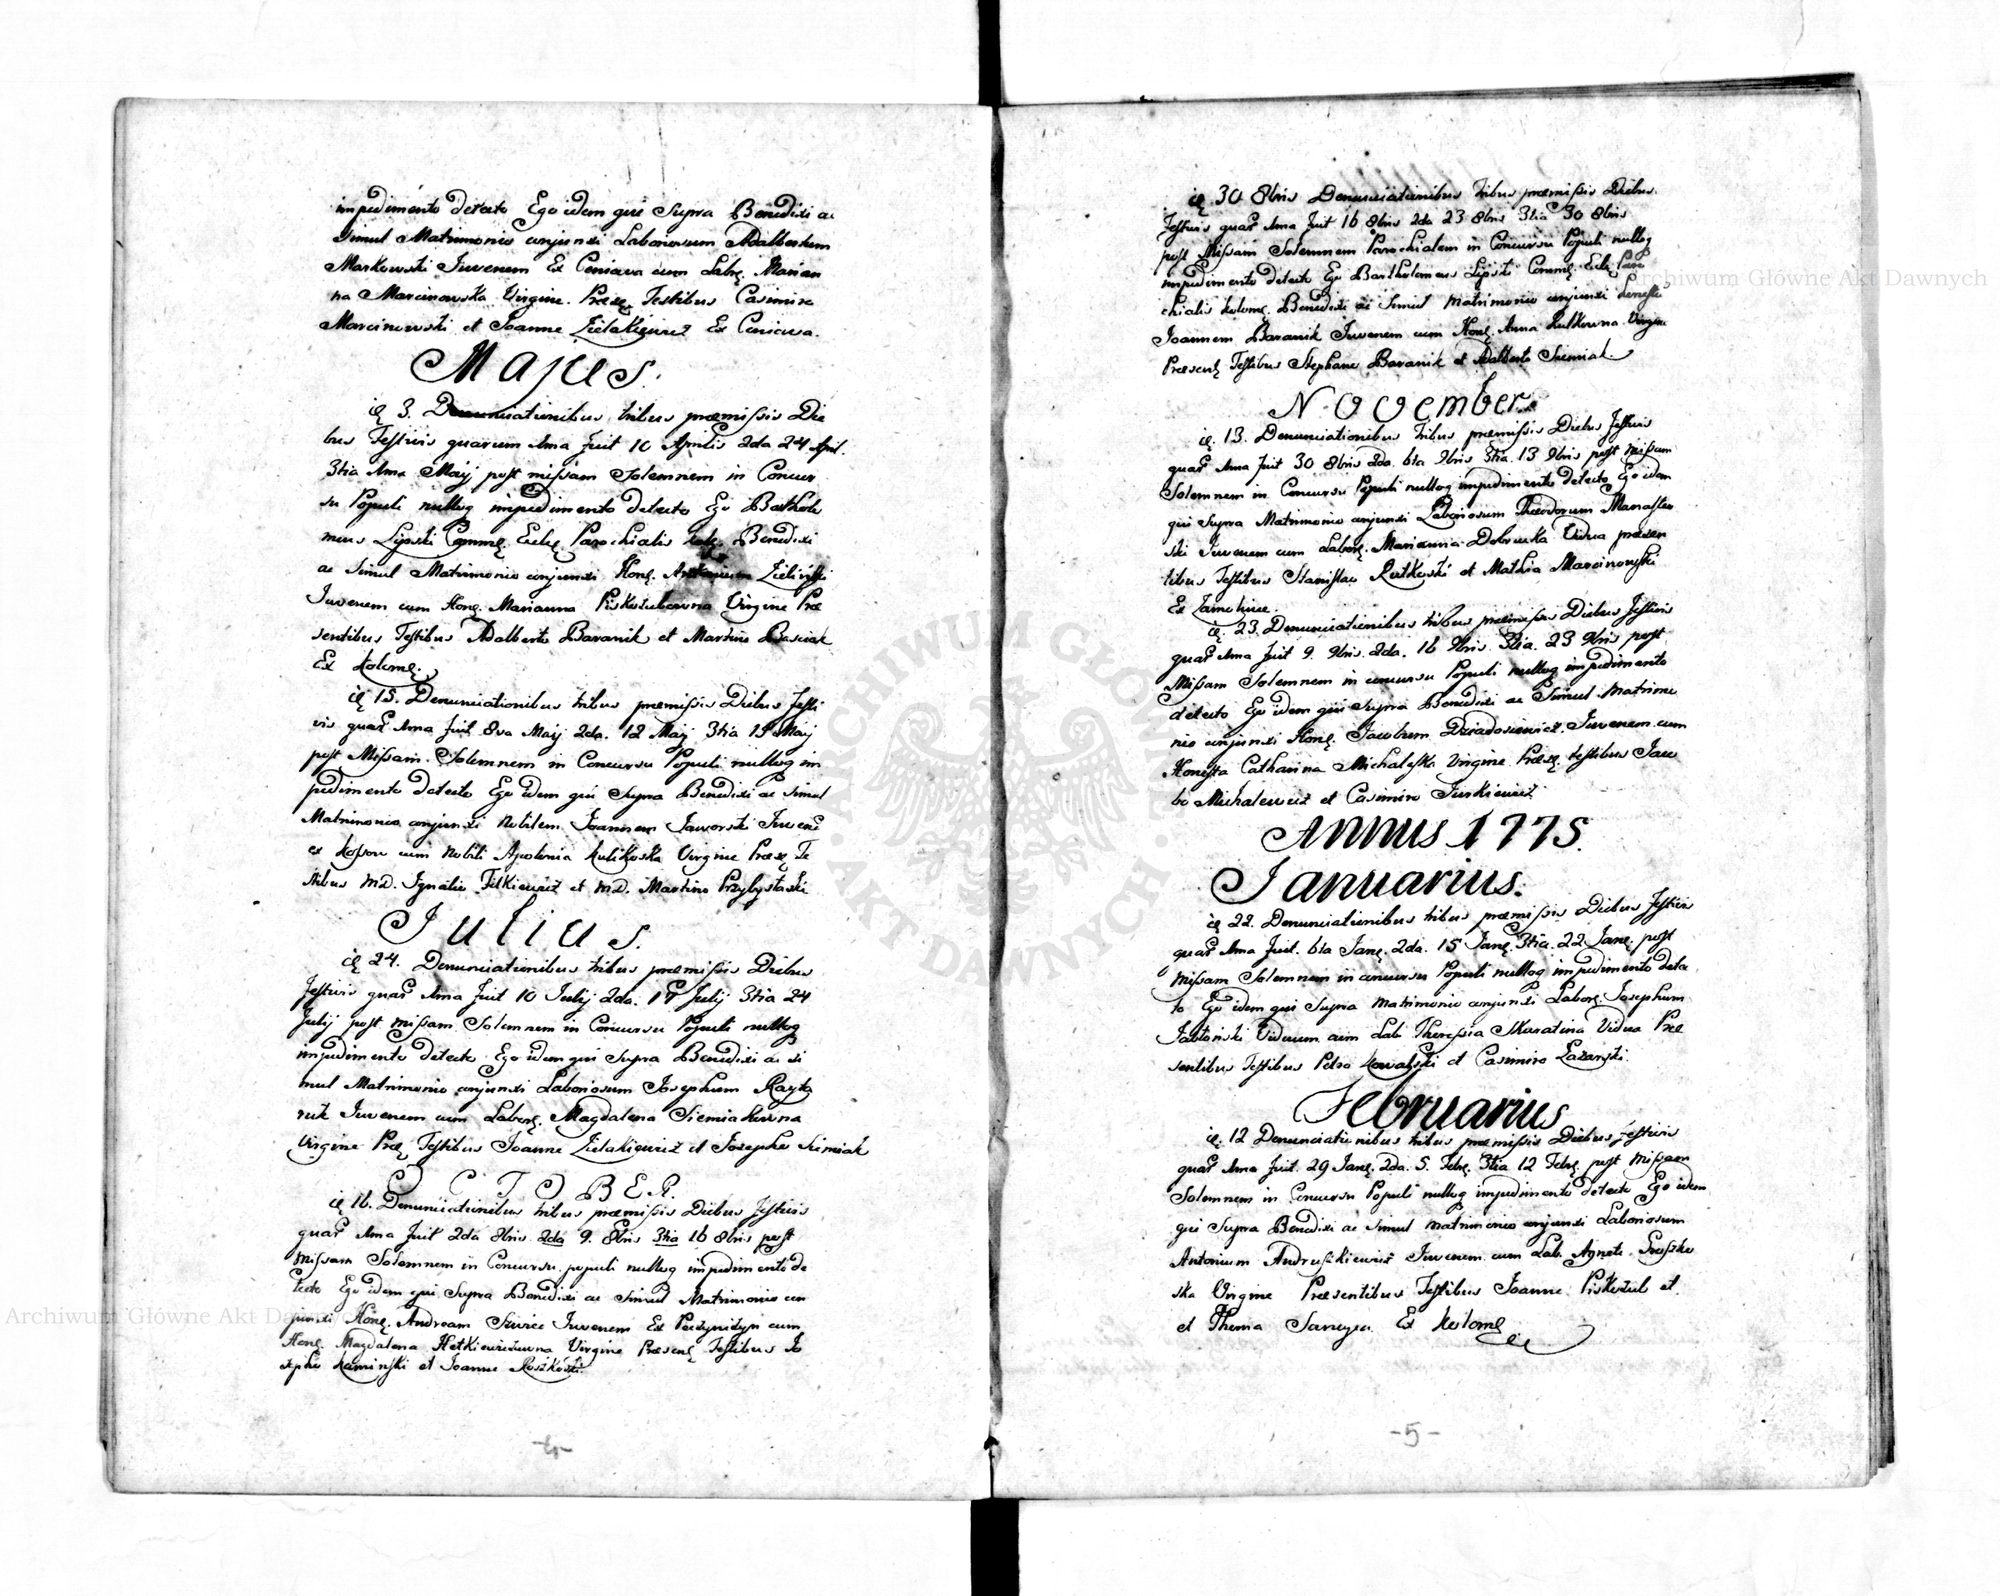 impedimento detecto Ego idem qui Supra Benedixi ac
Simul Matrimonio conjunxi Laboriosum Adalbertum
Markowski Juvenem Ex Ceniawa cum Labrę. Marian
na Marcinowska Virgine. Præsę. Testibus Casimiro
Marcinowski et Joanne Zielakiewicz Ex Ceniawa.
Majus.
ię 3. Denunciationibus tribus præmissis Die
bus Festivis quarum 1ma fuit 10 Aprilis 2da 24 Apl.
3tia 1ma Maij post missam Solemnem in Concur
su Populi nulloq impedimento detecto Ego Bartholo
meus Lipski Commę. Eclię Parochialis Kolę. Benedixi
ac Simul Matrimonio conjunxi Honę. Antonium Zieliński
Juvenem cum Honę. Marianna Piskozubowna Virgine Præ
sentibus Testibus Adalberto Baranik et Martino Basiak
Ex Kolomę.
ię 15. Denunciationibus tribus præmissis Diebus Festi
vis quar 1ma fuit 8va Maij 2da. 12 Maij 3tia 15 Maij
post Missam Solemnem in Concursu Populi nulloq im
pedimento detecto Ego idem qui Supra Benedixi ac Simul
Matrimonio conjunxi Nobilem Joannem Jaworski Juvenę
ex Kossow cum Nobili Apolonia Kulikoska Virgine Præsę Te
stibus MD. Ignatio Filkiewicz et MD. Martino Przybylski
Julius.
ię 24. Denunciationibus tribus præmissis Diebus
Festivis quar 1ma fuit 10 Julij 2da. 17 Julij 3tia 24
Julij post missam Solemnem in Concursu Populi nulloq
impedimento detecto Ego idem qui Supra Benedixi ac si
mul Matrimonio conjunxi Laboriosum Josephum Rayta
ruk Juvenem cum Laborę. Magdalena Siemiakowna
Virgine Præ. Testibus Joanne Zielakiewicz et Josepho Siemiak
OCTOBER.
ię 16. Denunciationibus tribus præmissis Diebus Festivis
quar 1ma fuit 2da 8bris 2da 9. 8bris 3tia 16 8bris post
Missam Solemnem in Concursu populi nulloq impedimento de
tecto Ego idem qui Supra Benedixi ac Simul Matrimonio con
junxi Honę. Andream Juvenem Ex cum
Honę. Magdalena Hetkiewiczowna Virgine Præsenę Testibus Jo
sepho Kaminski et Joanne Roszkoski.
-4-
ię 30 8bris Denunciationibus tribus præmissis Diebus
Festivis quar 1ma fuit 16 8bris 2da 23 8bris 3tia 30 8bris
post Missam Solemnem Parochialem in Concursu Populi nulloq
impedimento detecto Ego Bartholomeus Lipski Commę. Eclię Paro
chialis Kolomę. Benedixi ac Simul Matrimonio conjunxi Honestę
Joannem Baranik Juvenem cum Honę. Anna Rutkowna Virgine
Præsentę Testibus Stephano Baranik et Adalberto Siemiak.
November.
ię. 13. Denunciationibus tribus præmissis Diebus Festivis
quar 1ma fuit 30 8bris 2da. 6ta 9bris 3tia. 13 9bris post Missam
Solemnem in Concursu Populi nulloq impedimento detecto Ego idem
qui Supra Matrimonio conjunxi Laboriosum Theodorum Manaster
ski Juvenem cum Laborę. Marianna Dobrucka Vidua præsen
tibus Testibus Stanislao Rutkoski et Mathia Marcinowski
Ex Zamolince.
ię. 23. Denunciationibus tribus præmissis Diebus Festivis
quar 1ma fuit 9. 9bris. 2da. 16 9bris. 3tia. 23 9bris post
Missam Solemnem in concursu Populi nulloq impedimento
detecto Ego idem qui Supra Benedixi ac Simul Matrimo
nio conjunxi Honę. Jacobum Dziadosiewicz. Juvenem cum
Honesta Catharina Michalska Virgine Præsę. testibus Jaco
bo Michalewicz et Casimiro Jurkiewicz
Annus 1775.
Januarius.
ię 22. Denunciationibus tribus præmissis Diebus Festivis
quar 1ma fuit. 6ta Janę. 2da. 15 Janę. 3tia. 22 Janę. post
Missam Solemnem in concursu Populi nulloq impedimento detec
to Ego idem qui Supra Matrimonio conjunxi Laborę. Josephum
Jablonski Viduum cum Lab. Theresia Skaratina Vidua Præ
sentibus Testibus Petro Kowalski et Casimiro Lazarski.
Februarius
ię. 12 Denunciationibus tribus præmissis Diebus Festivis
quar 1ma fuit. 29 Janę. 2da. 5. Febrę. 3tia 12 Febrę. post Missam
Solemnem in Concursu Populi nulloq impedimento detecto Ego idem
qui Supra Benedixi ac Simul Matrimonio conjunxi Laboriosum
Antonium Andruszkiewicz Juvenem cum Lab. Agnete Groszko
ska Virgine Præsentibus Testibus Joanne Piskozub et
et Thoma Ex Kolomę
-5-
ARCHIWUM GŁÓWNE AKT DAWNYCH
Archiwum Główne Akt Dawnych
Archiwum Główne Akt Dawnych